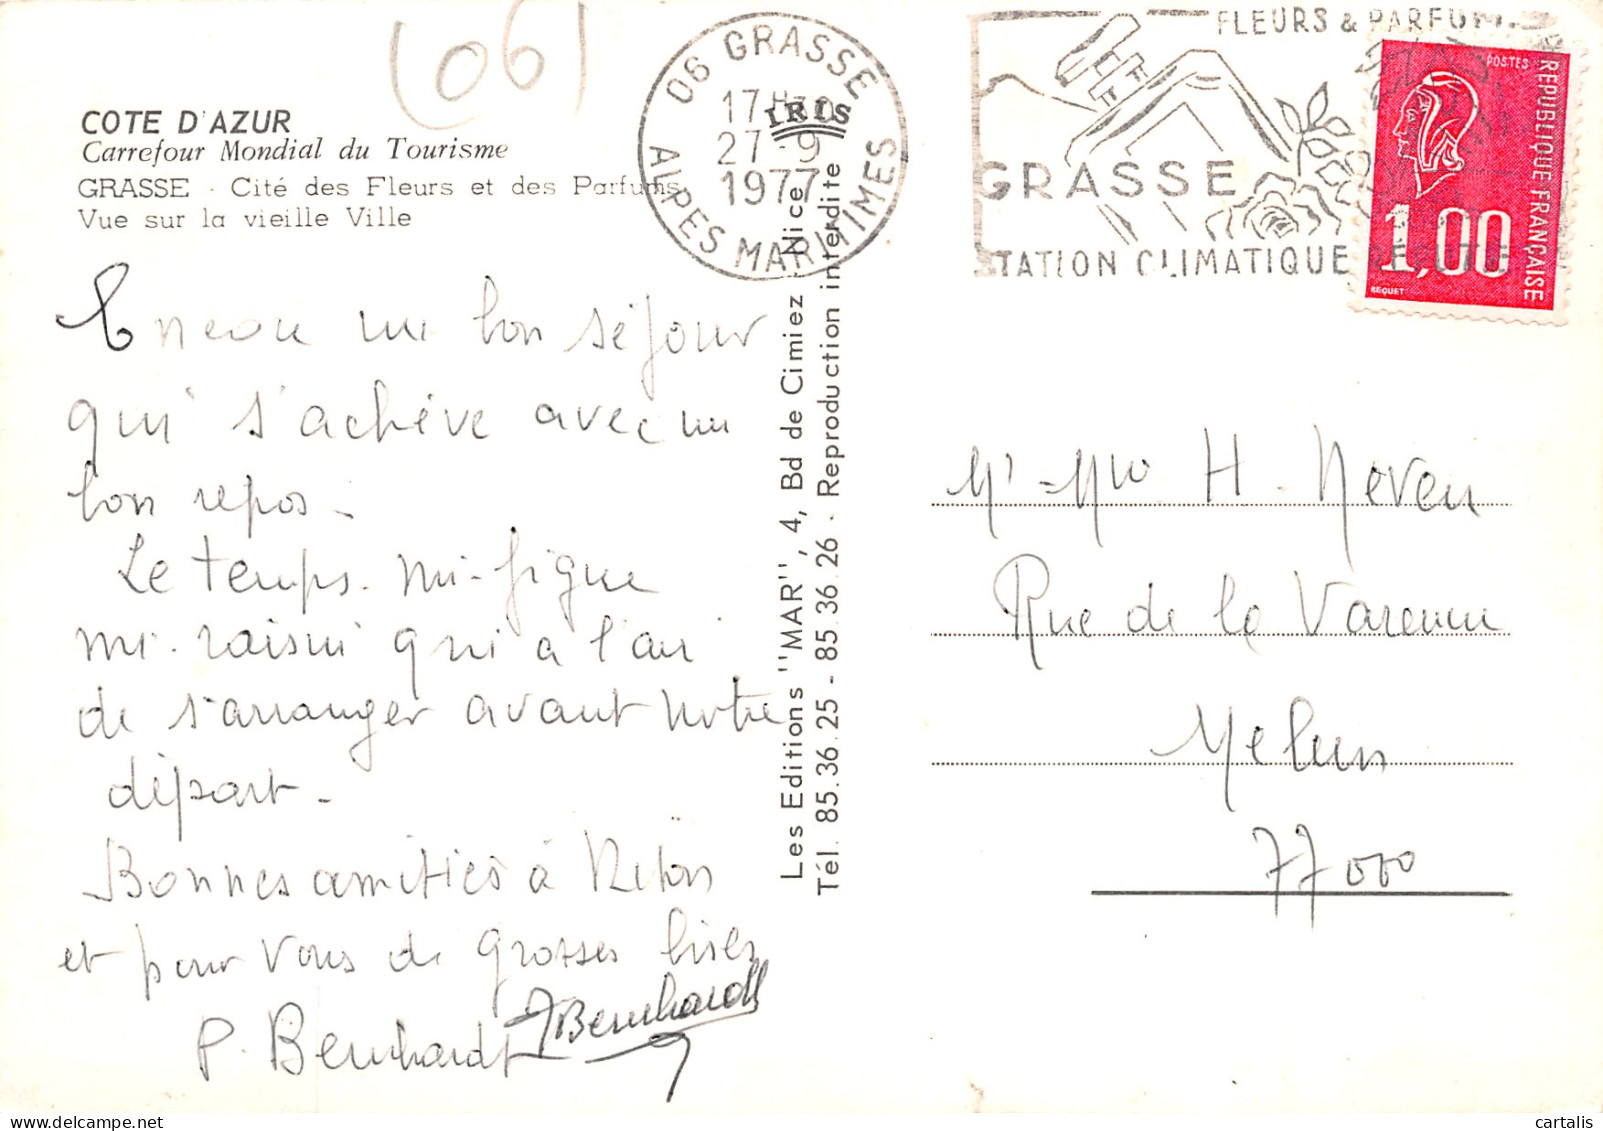 (06)
COTE D'AZUR
Carrefour Mondial du Tourisme
GRASSE - Cité des Fleurs et des Parfums
Vue sur la vieille Ville
Encore un bon séjour
qui s'achève avec un
bon repos.
Le temps. mi-figue
mi-raisin qui a l'air
de s'arranger avant notre
départ.
Bonnes amitiés à
et pour vous de grosses bises
P. Bernhardt JBernhardt
06 GRASSE
17H30
27-9
1977
ALPES MARITIMES
IRIS
Les Editions "MAR", 4, Bd de Cimiez - Nice
Tél. 85.36.25 - 85.36.26 - Reproduction interdite
FLEURS & PARFUMS
GRASSE
STATION CLIMATIQUE
POSTES
REPUBLIQUE FRANÇAISE
1,00
BEQUET
Mr - Mme H. Neveu
Rue de la Varenne
Melun
77000
cartalis